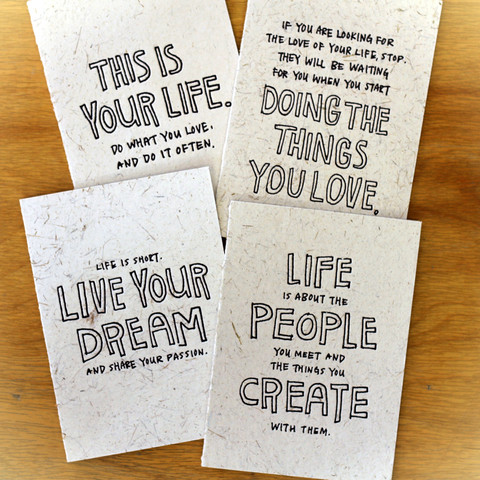 THIS IS
YOUR LIFE.
DO WHAT YOU LOVE,
AND DO IT OFTEN.
IF YOU ARE LOOKING FOR
THE LOVE OF YOUR LIFE, STOP.
THEY WILL BE WAITING
FOR YOU WHEN YOU START
DOING THE
THINGS
YOU LOVE.
LIFE IS SHORT.
LIVE YOUR
DREAM
AND SHARE YOUR PASSION.
LIFE
IS ABOUT THE
PEOPLE
YOU MEET AND
THE THINGS YOU
CREATE
WITH THEM.